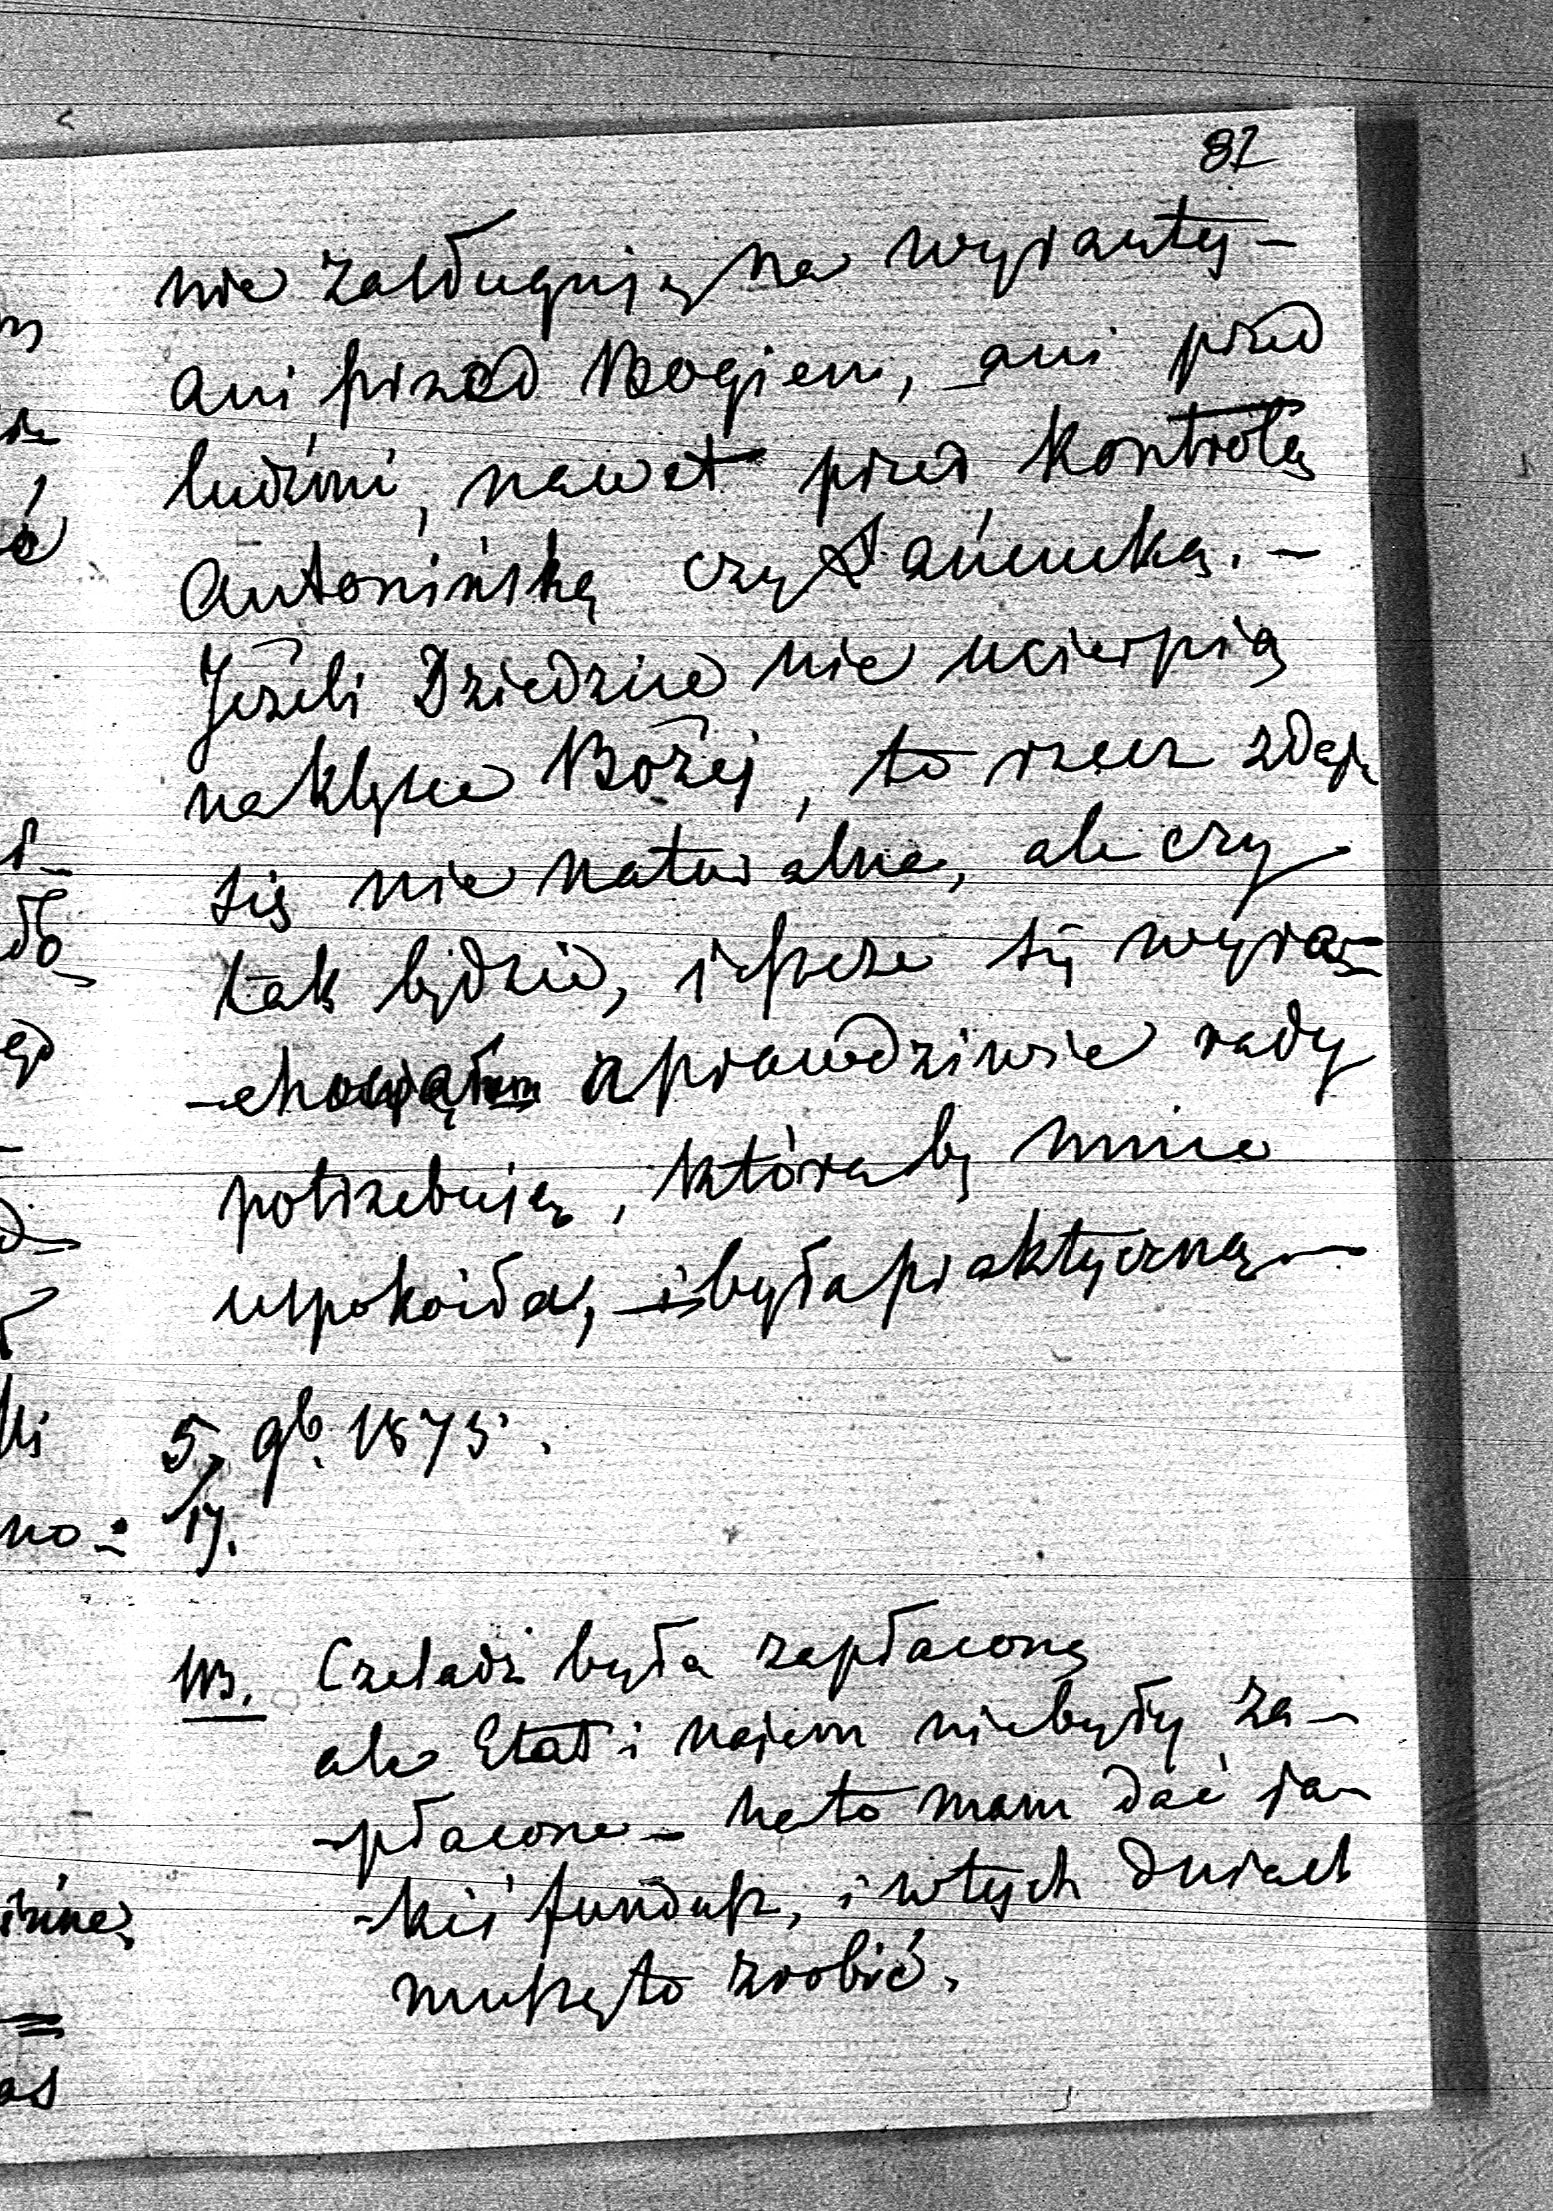 82
nie zasługują na wyrzuty –
ani przed Bogiem, ani przed
ludźmi, nawet przed kontrolą
Antonińską czy Łańcucką. –
Jeżeli Dziedzice nie ucierpią
na klęsce Bożej, to rzecz zdaje
się nie naturalna, ale czy
tak będzie, jeszcze się
a prawdziwie rady
potrzebuję, któraby mnie
uspokoiła, i była praktyczną –
5/17. 9b. 1875.
NB. Czeladź była zapłaconą
ale Etat i najem niebyły za–
–płacone – na to mam dać ja–
–kiś fundusz, i w tych dniach
muszę to zrobić.